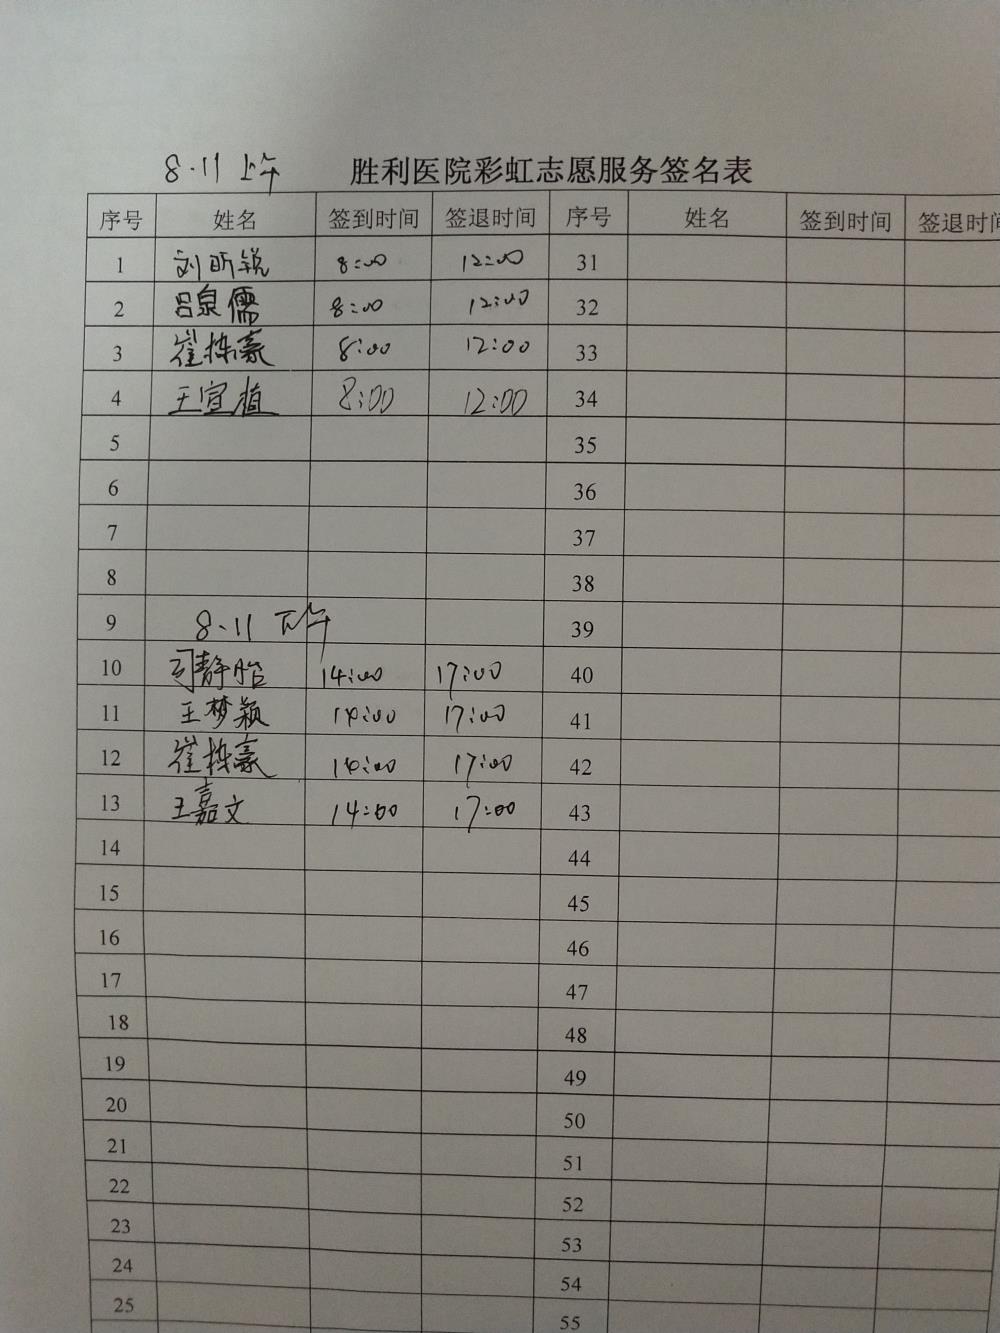 8.11 上午 胜利医院彩虹志愿服务签名表
序号 姓名 签到时间 签退时间 序号 姓名 签到时间 签退时间
1 刘昕锐 8:00 12:00 31
2 吕泉儒 8:00 12:00 32
3 崔栋豪 8:00 12:00 33
4 王宣植 8:00 12:00 34
5 35
6 36
7 37
8 38
9 8.11 下午 39
10 司静怡 14:00 17:00 40
11 王梦颖 14:00 17:00 41
12 崔栋豪 14:00 17:00 42
13 王嘉文 14:00 17:00 43
14 44
15 45
16 46
17 47
18 48
19 49
20 50
21 51
22 52
23 53
24 54
25 55